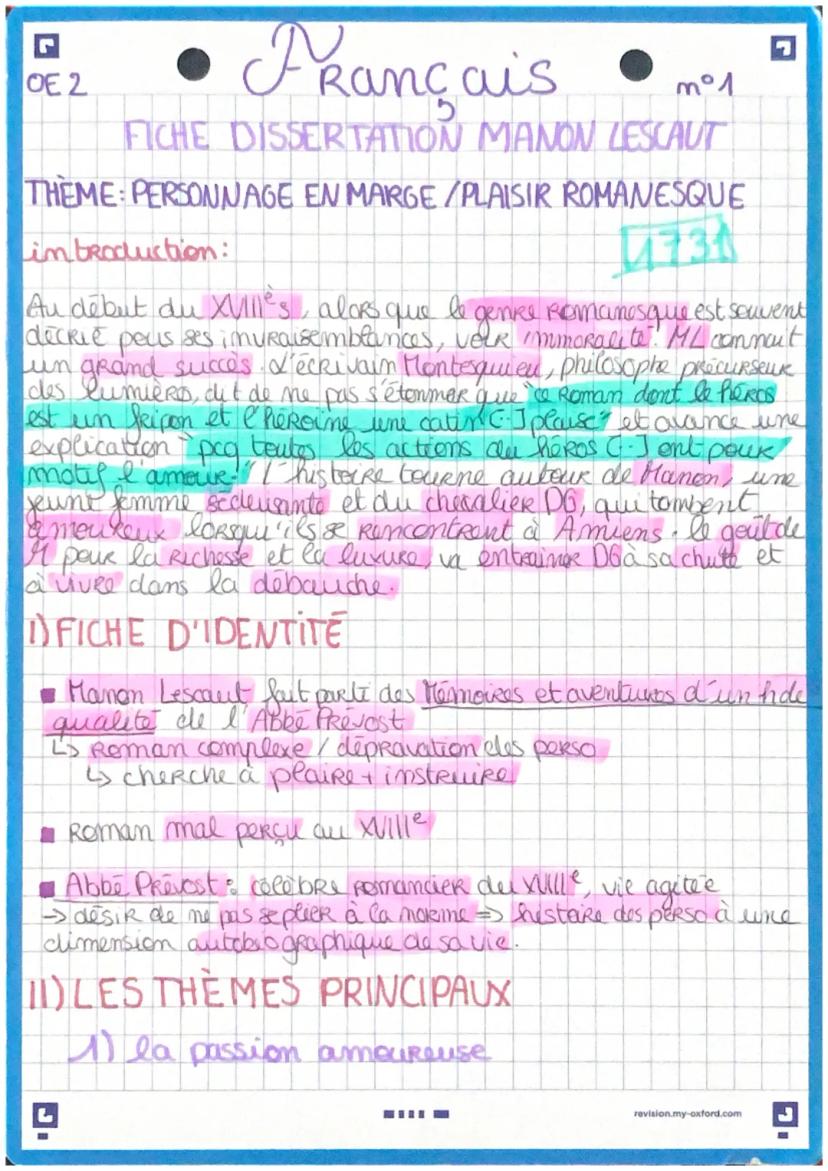 Français
OE2
n°1
FICHE DISSERTATION MANON LESCAUT
THÈME: PERSONNAGE EN MARGE / PLAISIR ROMANESQUE
introduction:
1731
Au début du XVIIIès, alors que le genre romanesque est souvent
décrié pour ses invraisemblances, voir immoralité. ML connait
un grand succès. L'écrivain Montesquieu, philosophe précurseur
des lumières, dit de ne pas s'étonner que "ce roman dont le héros
est un fripon et l'héroïne une catin [-] plaise" et avance une
explication "pcq toutes les actions du héros [-] ont pour
motif l'amour." L'histoire tourne autour de Manon, une
jeune femme séduisante et du chevalier DG, qui tombent
amoureux lorsqu'ils se rencontrent à Amiens. le goût de
M pour la richesse et la luxure, va entrainer DG à sa chute et
à vivre dans la débauche.
I) FICHE D'IDENTITÉ
Manon Lescaut fait parti des Mémoires et aventures d'un h de
qualité de l'Abbé Prévost
↳ Roman complexe / dépravation des perso
↳ cherche à plaire + instruire
Roman mal perçu au XVIIIe
Abbé Prévost : célèbre romancier du XVIIIe, vie agitée
→ désir de ne pas se plier à la norme ⇒ histoire des perso à une
dimension autobiographique de sa vie.
II) LES THÈMES PRINCIPAUX
1) la passion amoureuse
revision.my-oxford.com